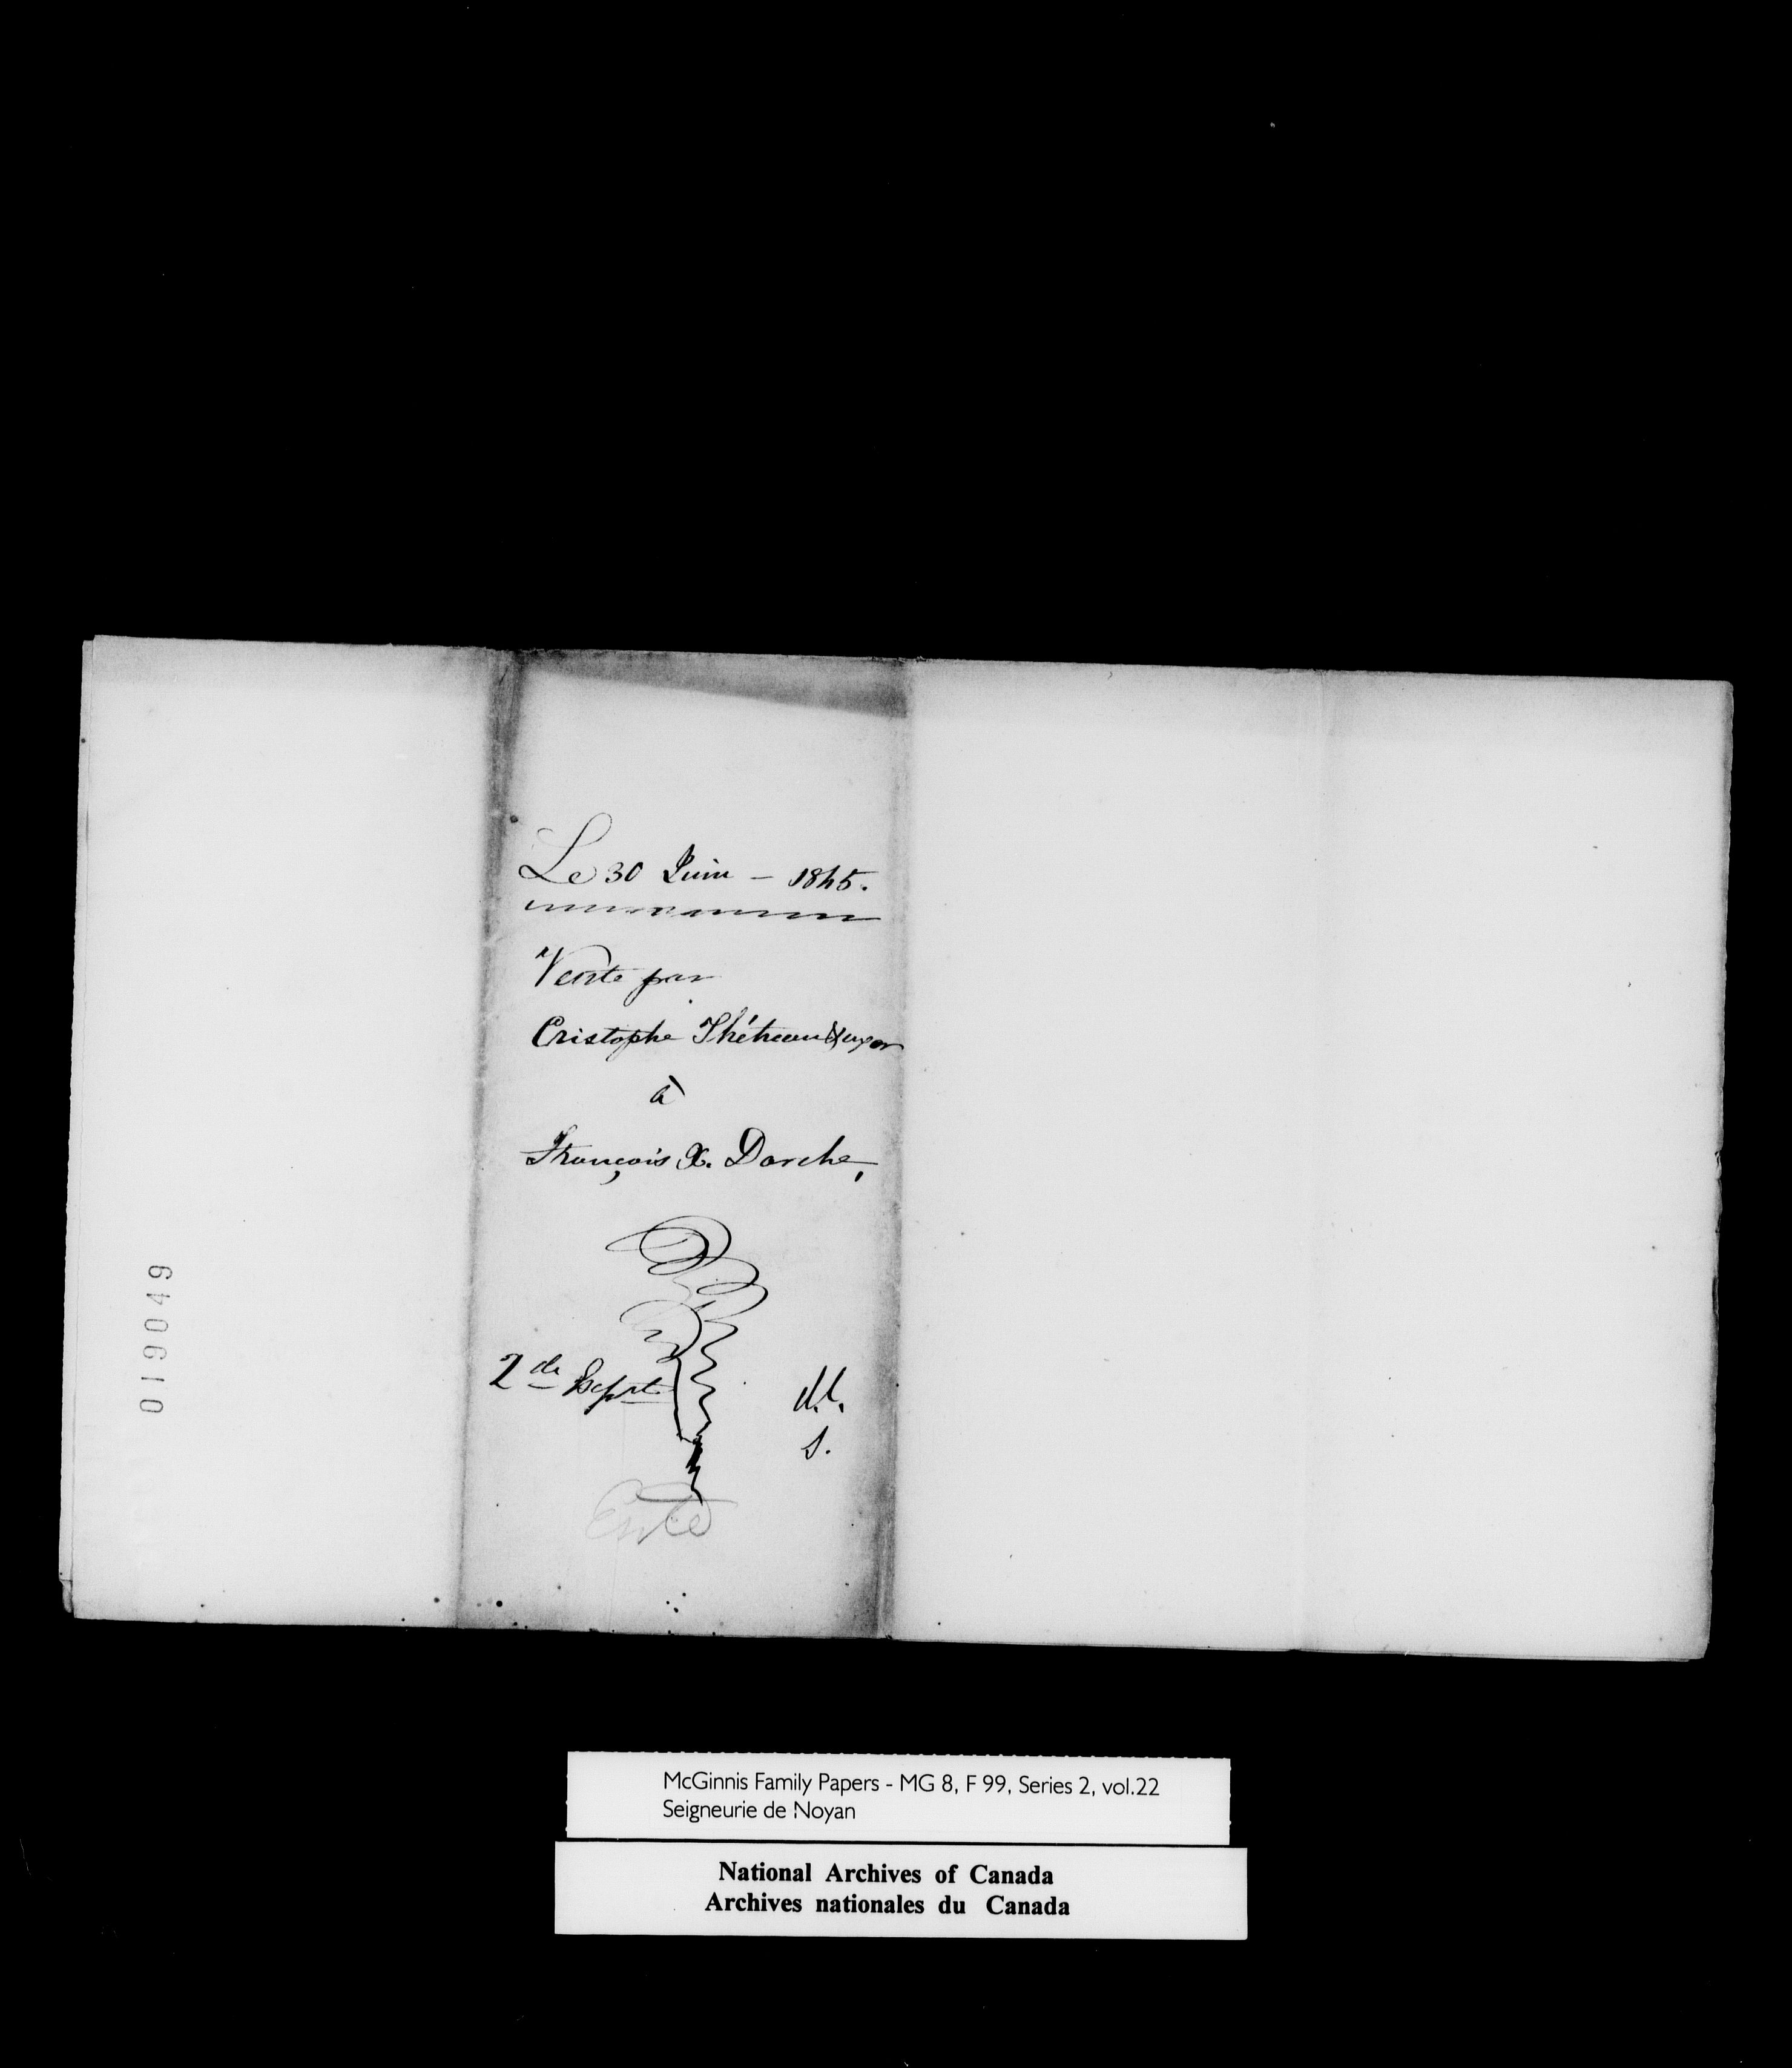 Le 30 Juin - 1845.
Vente par
Cristophe Thétreau & uxor
à
François X. Darche,
2de Expte
Entd
019049
McGinnis Family Papers - MG 8, F 99, Series 2, vol.22
Seigneurie de Noyan
National Archives of Canada
Archives nationales du Canada